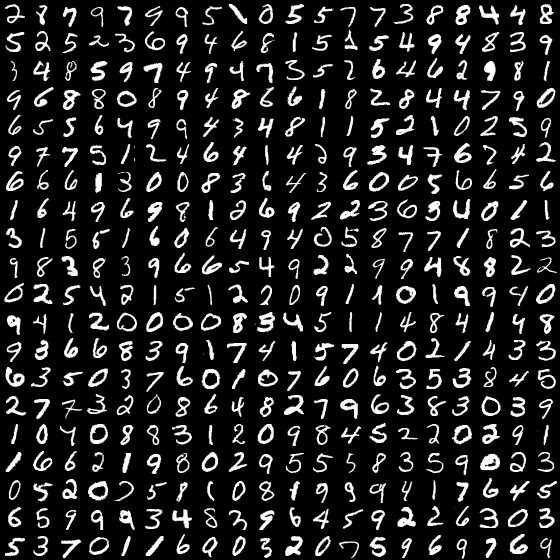 2 8 7 9 7 9 9 5 1 0 5 5 7 7 3 8 8 4 4 8
5 2 5 2 3 6 9 4 6 8 1 5 1 5 4 9 4 8 3 9
3 4 8 5 9 7 4 9 4 7 3 5 2 6 4 6 2 9 8 1
9 6 8 8 0 8 9 4 8 6 6 1 8 2 8 4 4 7 9 0
6 5 5 6 4 9 9 4 3 4 8 1 1 5 2 1 0 2 5 9
9 7 7 5 1 2 4 6 4 1 4 2 9 3 4 7 6 7 4 2
6 6 6 1 3 0 0 8 3 6 4 3 6 0 0 5 6 6 5 6
1 6 4 9 6 9 8 1 2 6 9 2 2 3 6 3 4 0 1 1
3 1 5 5 1 6 0 6 4 9 4 0 5 8 7 7 1 8 2 3
9 8 3 8 3 9 6 6 5 4 9 2 2 9 9 4 8 8 2 2
0 2 5 4 2 1 5 1 2 2 0 9 1 1 0 1 9 9 4 0
9 4 1 2 0 0 0 0 8 5 4 5 1 1 4 8 4 1 4 8
9 3 6 6 8 3 9 1 7 4 1 5 7 4 0 2 1 4 3 3
6 3 5 0 3 7 6 0 1 0 7 6 0 6 3 5 3 8 4 5
2 7 7 3 2 0 8 6 4 8 2 7 9 6 3 8 3 0 3 9
1 0 4 0 8 8 3 1 2 0 9 8 4 5 2 2 0 2 9 1
1 6 6 2 1 9 8 0 2 9 5 5 5 8 3 5 9 0 2 3
0 5 2 0 2 5 8 1 0 8 1 9 9 9 4 1 7 6 4 5
6 5 9 9 9 3 4 8 3 9 6 4 5 9 2 2 6 3 0 3
5 3 7 0 1 1 6 0 0 3 2 0 7 5 9 6 9 7 6 9